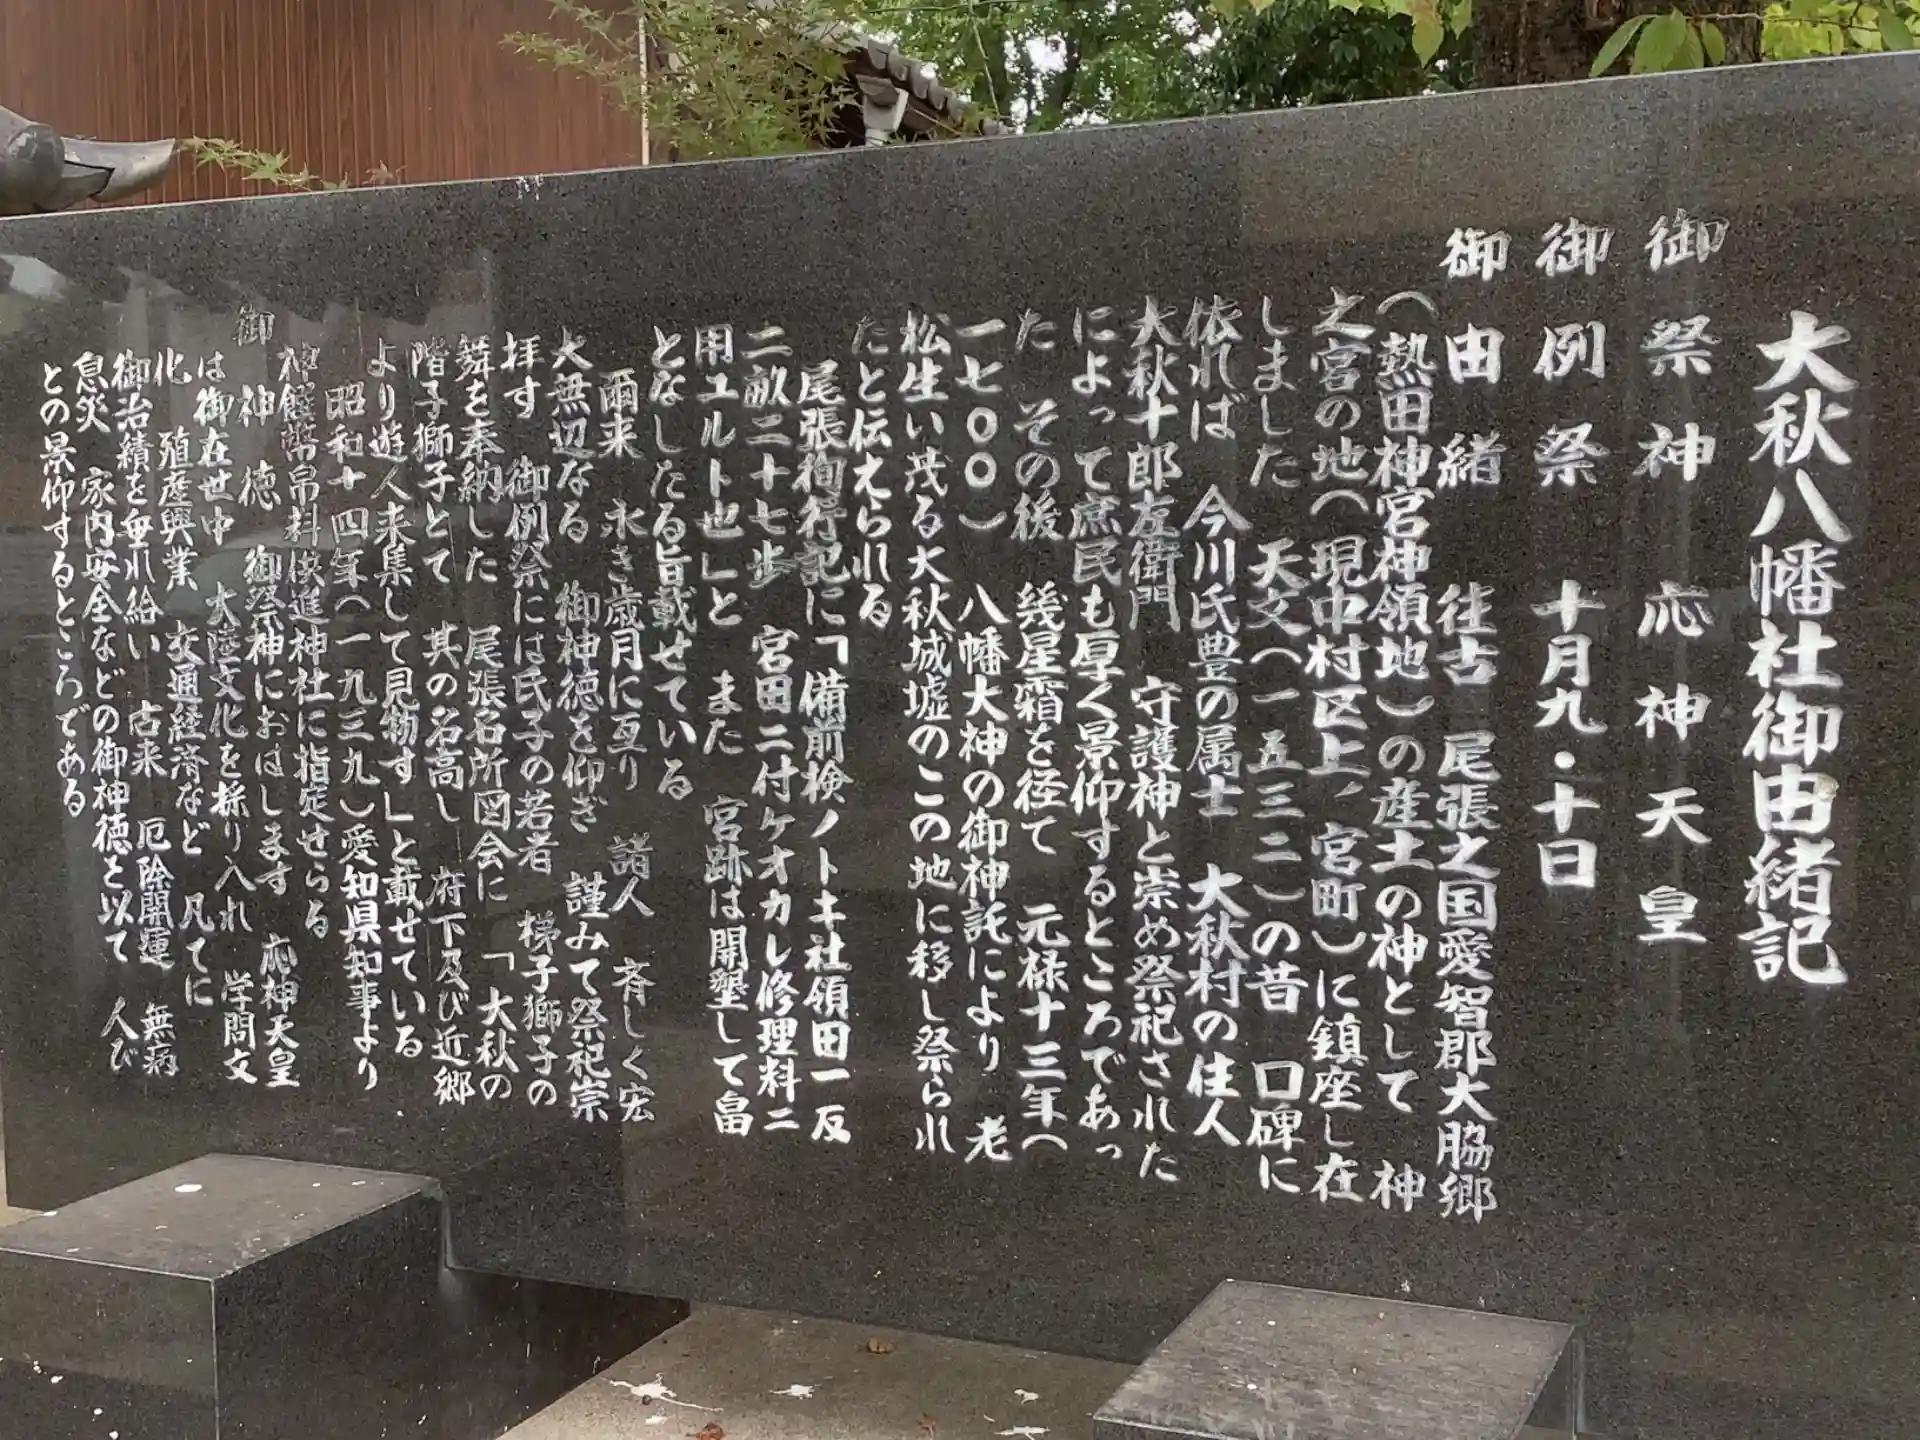 大秋八幡社御由緒記
御祭神 応神天皇
御例祭 十月九・十日
御由緒 往古 尾張之国愛智郡大脇郷
(熱田神宮神領地)の産土の神として 神
之宮の地(現中村区上、宮町)に鎮座し在
しました 天文(一五三二)の昔 口碑に
依れば 今川氏豊の属士 大秋村の住人
大秋十郎左衛門 守護神と崇め祭祀された
によって庶民も厚く景仰するところであっ
た その後 幾星霜を径て 元禄十三年(
一七〇〇) 八幡大神の御神託により 老
松生い茂る大秋城墟のこの地に移し祭られ
たと伝えられる
尾張徇行記に「備前検ノトキ社領田一反
二畝二十七歩 宮田ニ付ケオカレ修理料ニ
用ユルト也」と また 宮跡は開墾して畠
となしたる旨載せている
爾来 永き歳月に亙り 諸人 斉しく宏
大無辺なる 御神徳を仰ぎ 謹みて祭祀崇
拝す 御例祭には氏子の若者 梯子獅子の
舞を奉納した 尾張名所図会に 「大秋の
階子獅子とて 其の名高し 府下及び近郷
より遊人来集して見物す」と載せている
昭和十四年(一九三九)愛知県知事より
神饌幣帛料供進神社に指定せらる
御神徳 御祭神におはします 応神天皇
は御在世中 大陸文化を採り入れ 学問文
化 殖産興業 交通経済など 凡てに
御治績を垂れ給い 古来 厄除開運 無病
息災 家内安全などの御神徳を以て 人び
との景仰するところである